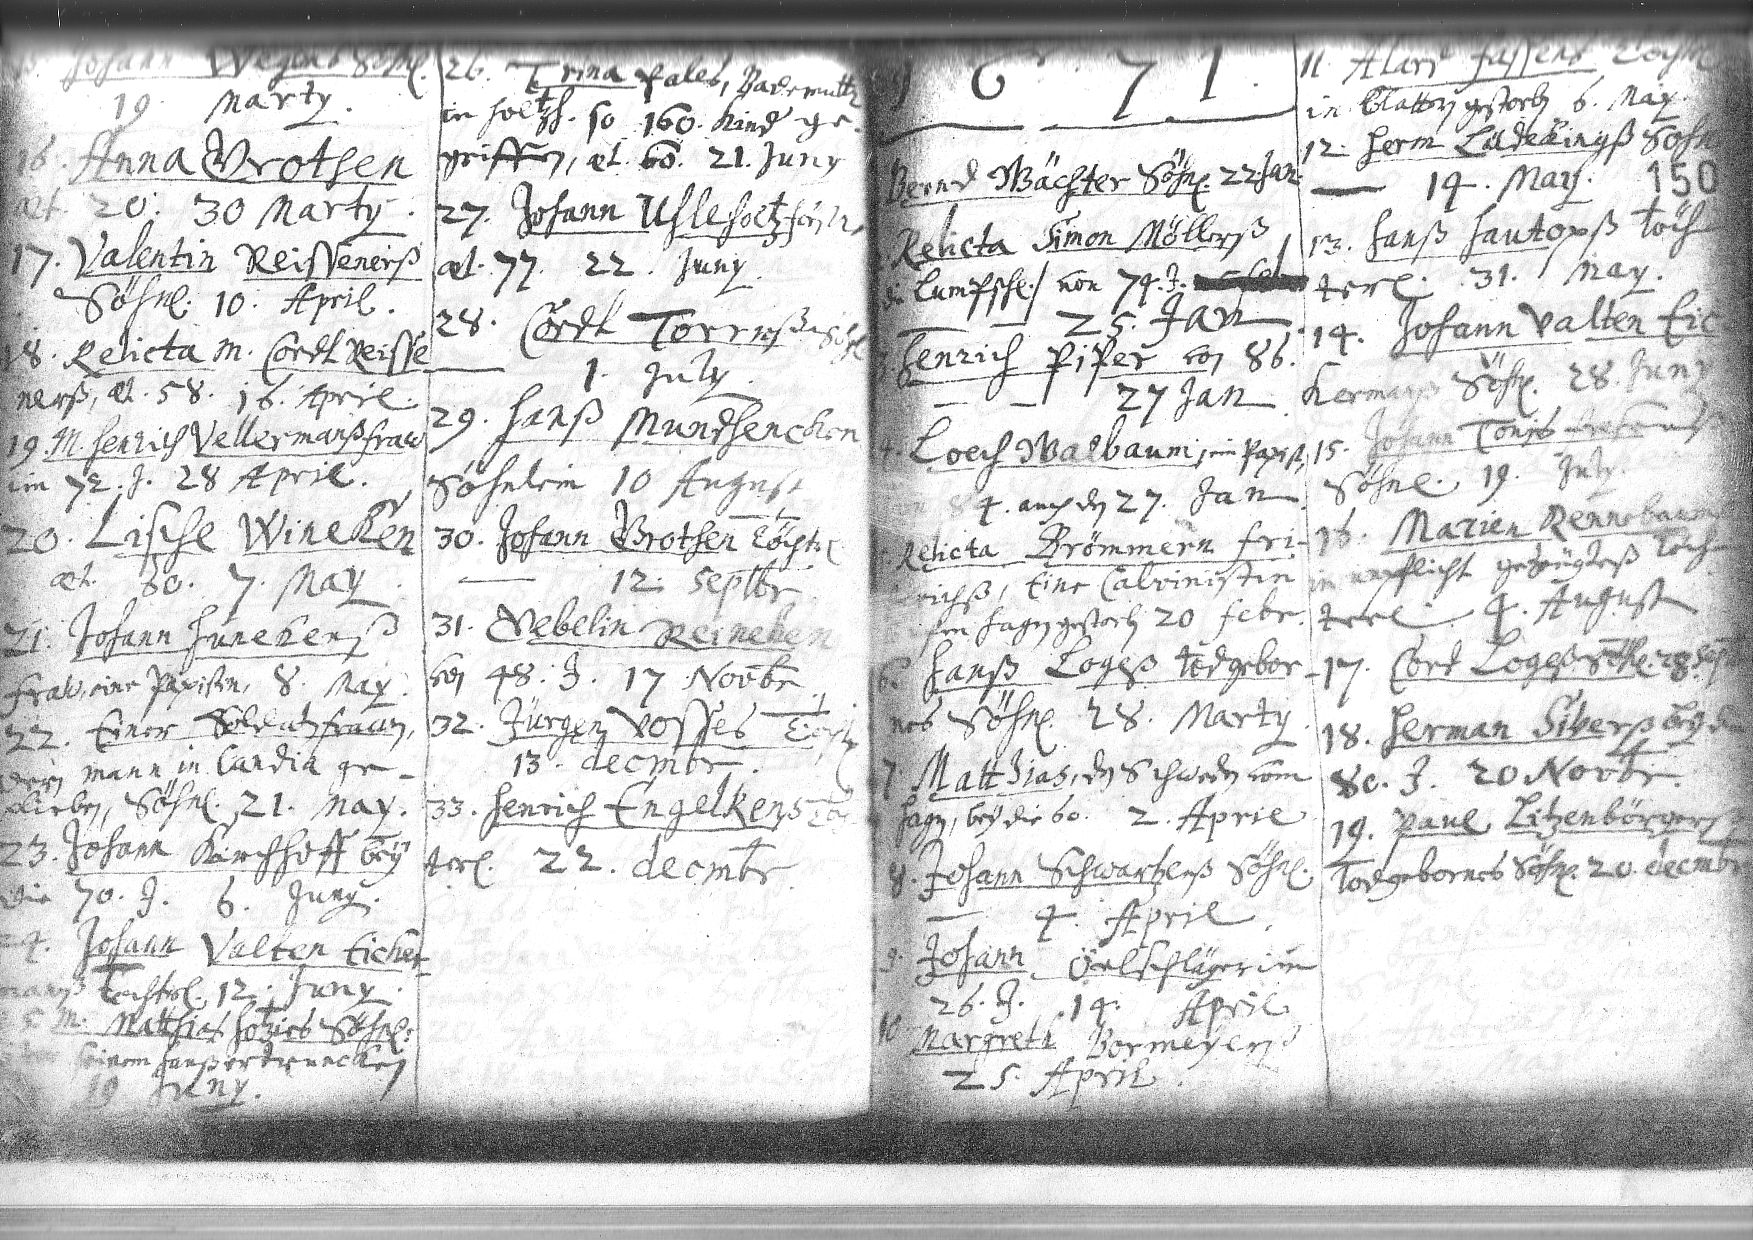 Johann Wegens Söhnl.
19 Marty.
16. Anna Vrothsen
æt. 20. 30 Marty.
17. Valentin Reisseners̈
Söhnl. 10. April.
18. Relicta M. Cordt Reisse
nerß, æt. 58. 16. April.
19. M. Henrich Vellermanß fraw
im 72. J. 28 April.
20. Lische Wineken
æt. 30. 7. May.
21. Johann Hunekenß
fraw, eine Papistin, 8. May.
22. Einer Soldatzfrawen,
mann in Candia ge-
blieben, Söhnl. 21. May.
23. Johann Kirchhoff bey
die 70. J. 6. Juny.
24. Johann Valten Eicker-
manß Töchterl. 12. Juny.
M. Matthias Söhnl.
19 Juny.
26. Trina Pales, Bademutter
in Holtzh. so 160. Kind ge-
griffen, æt. 60. 21. Juny
27. Johann Uhleholtz
æt. 77. 22. Juny.
28. Cordt Söhnl.
1. July.
29. Hanß Mundhencken
Söhnlein 10 August
30. Johann Vrothsen Töchterl.
12. Septbr.
31. Vebelin Reineken
von 48. J. 17 Novbr.
32. Jürgen Vosses Töchterl.
13. decmbr.
33. Henrich Engelkens Töch
terl. 22. decmbr.
1 6 7 1.
Bernd Wächter Söhnl. 22 Jan.
Relicta Simon Möllerß
von 74. J.
25. Jan
Henrich Piper von 86.
27 Jan
4. Loech Walbaum, ein Papist,
von 84. auch den 27. Jan
Relicta Brömmern Fri-
richß, Eine Calvinistin
gestorb. 20 Febr.
6. Hanß Logeß todgebor-
nes Söhnl. 28. Marty.
7. Matthias, der Schwede vom
Hagen, bey die 60. 2. April
8. Johann Schwartzenß Söhnl.
4. April.
9. Johann Öelschläger im
26. J. 14. April
10 Margreta Bormeyerß
25. April.
11. Alard Fassens Töchterl.
in Blattern gestorb. 6. May.
12. Herm Lüdekingß Sohn
14. May. 150
13. Hanß Hautopß Töch
terl. 31. May.
14. Johann Valten Eic
kermanß Söhnl. 28. Juny
15. Johann Tonies
Söhnl. 19. July.
16. Marien Rennebaum
in unpflicht gezeugteß Töch
terl 4. August
17. Cord Logeß Söhnl. 28.
18. Herman Siverß bey die
80. J. 20 Novbr.
19. Paul Litzenbörgerß
Todgebornes Söhnl. 20. decmbr